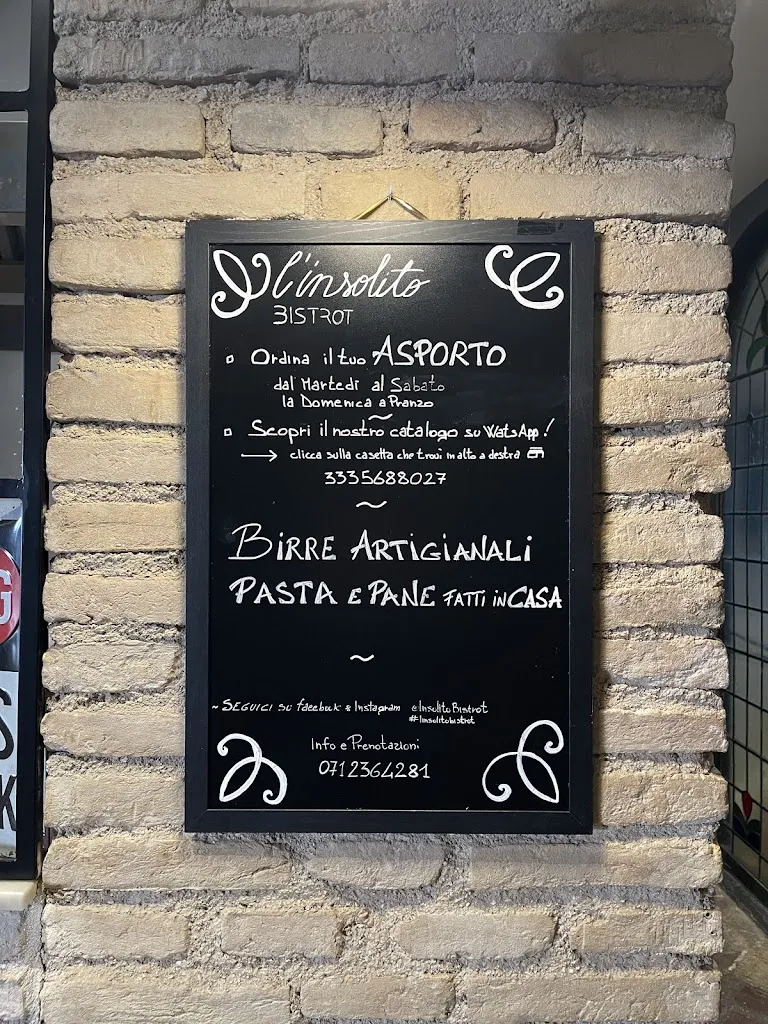 l'insolito
BISTROT
Ordina il tuo ASPORTO
dal Martedì al Sabato
la Domenica a Pranzo
~
Scopri il nostro catalogo su WatsApp!
→ clicca sulla casetta che trovi in alto a destra
3335688027
~
BIRRE ARTIGIANALI
PASTA E PANE FATTI IN CASA
~
~ SEGUICI SU facebook & Instagram @InsolitoBistrot
#linsolitobistrot
Info e Prenotazioni
0712364281
G
S
K